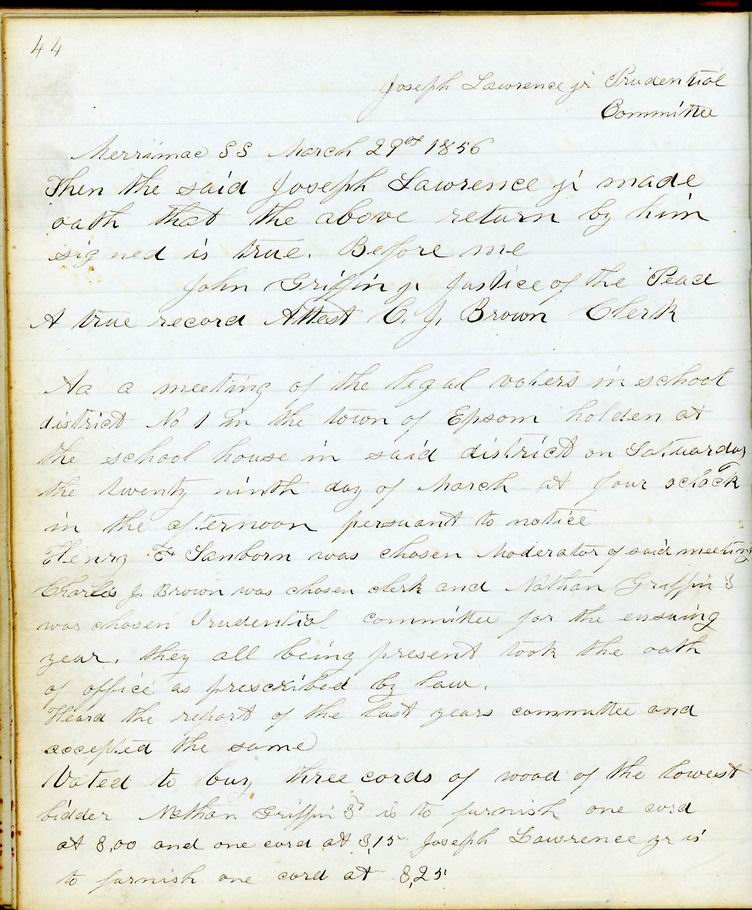 44
Joseph Lawrence jr Prudential
Committee
Merrimac SS March 29th 1856
Then the said Joseph Lawrence jr made
oath that the above return by him
signed is true. Before me
John Griffin jr Justice of the Peace
A true record Attest C. J. Brown Clerk
Aa a meeting of the legal voters in school
district No 1 in the town of Epsom holden at
the school house in said district on Satuarday
the twenty ninth day of March at four oclock
in the afternoon persuant to notice
Henry F Sanborn was chosen Moderator of said meeting
Charles J. Brown was chosen clerk and Nathan Griffin 3
was chosen Prudential committee for the ensuing
year. they all being present took the oath
of office as prescribed by law.
Heard the report of the last years committee and
accepted the same
Voted to buy three cords of wood of the lowest
bidder Nathan Griffin 3d is to furnish one cord
at 3,00 and one cord at 3,15 Joseph Lawrence jr is
to furnish one cord at 3,25